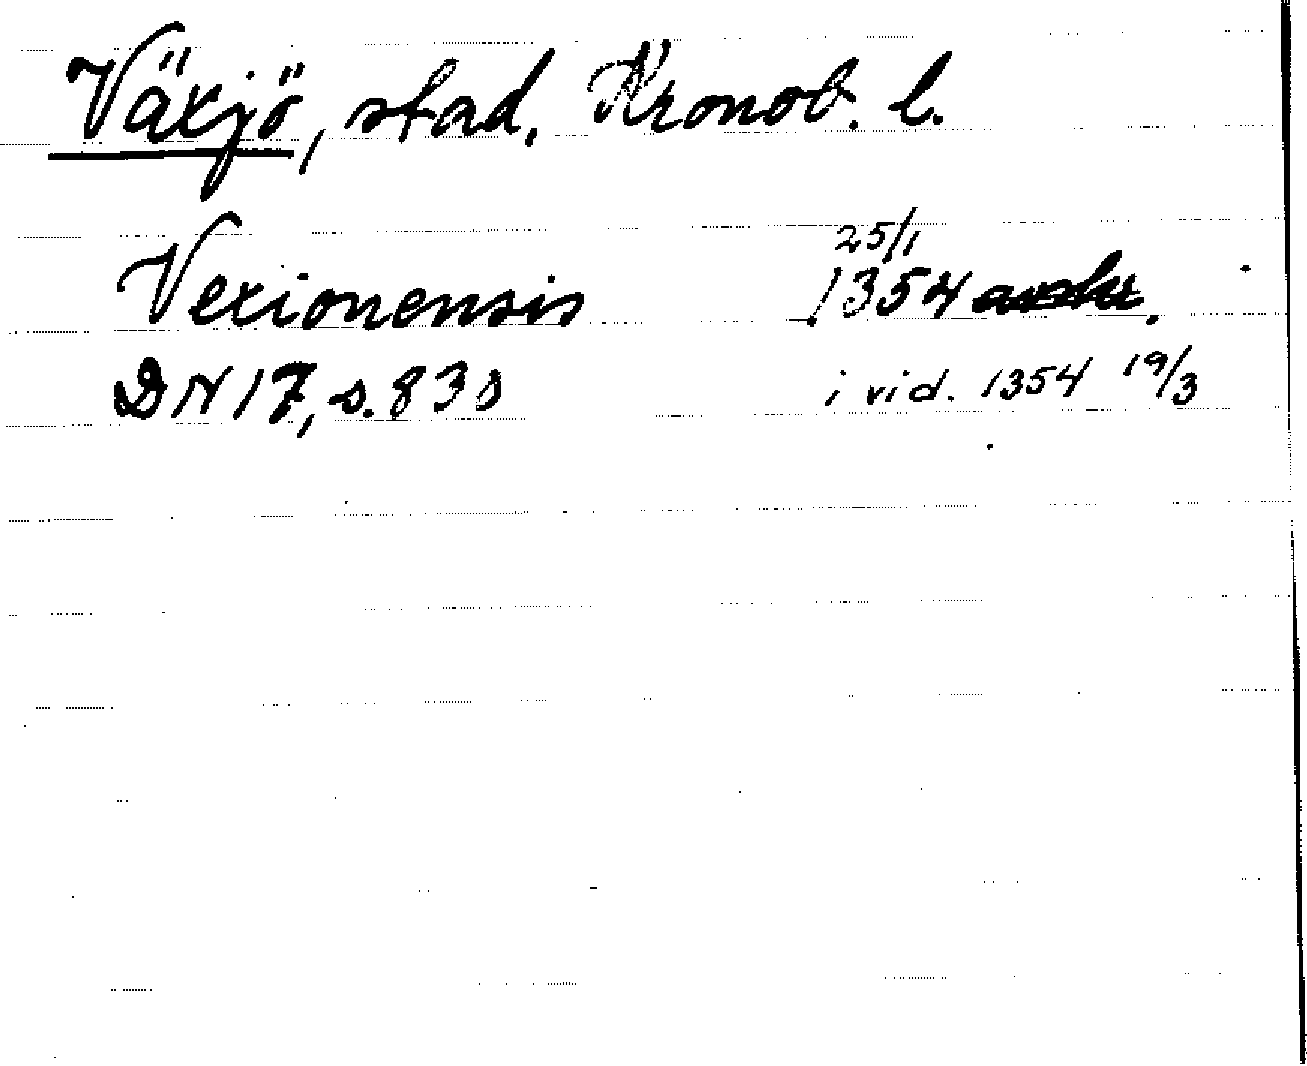 Växjö, stad, Kronob. l.
Vexionensis 25/1 1354 avskr.
DN 17, s. 830 i vid. 1354 19/3